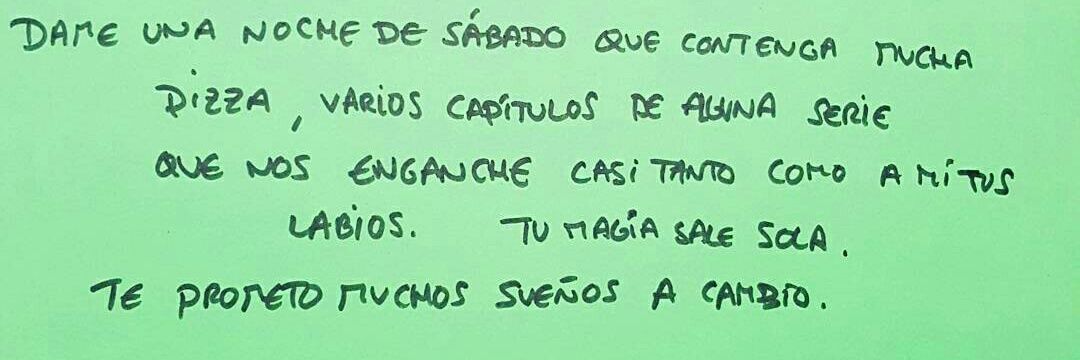 DAME UNA NOCHE DE SÁBADO QUE CONTENGA MUCHA
PIZZA, VARIOS CAPÍTULOS DE ALGUNA SERIE
QUE NOS ENGANCHE CASI TANTO COMO A MÍ TUS
LABIOS. TU MAGÍA SALE SOLA.
TE PROMETO MUCHOS SUEÑOS A CAMBIO.